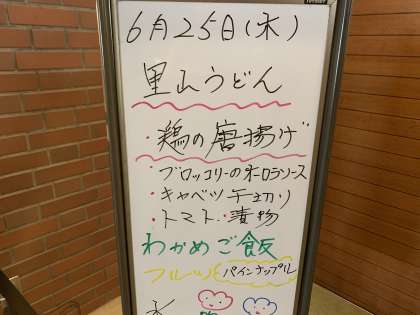 6月25日(木)
里山うどん
・鶏の唐揚げ
・ブロッコリーのホロソース
・キャベツ千切り
・トマト・漬物
わかめご飯
フルーツ(パインナップル